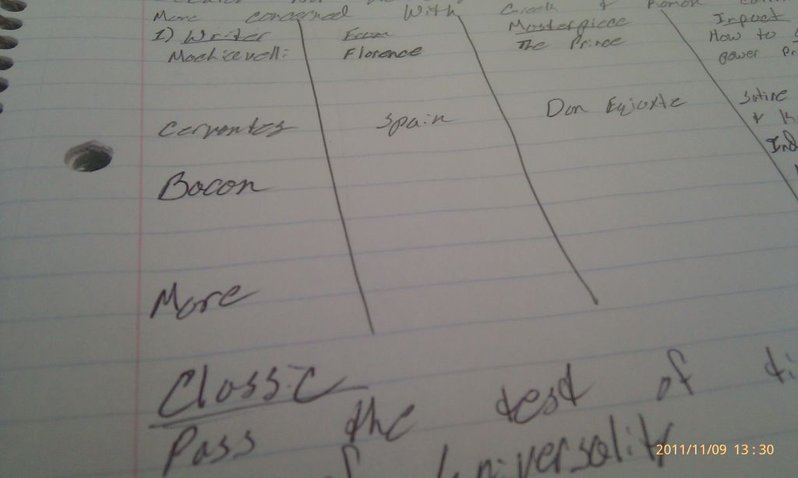 More concerned with Greek & Roman
1) Writer From Masterpiece Impact
Machiavelli: Florence The Prince How to
power
Cervantes Spain Don Equioxte Satire
&
Bacon
More
Classic
Pass the test of
of Universality
2011/11/09 13:30